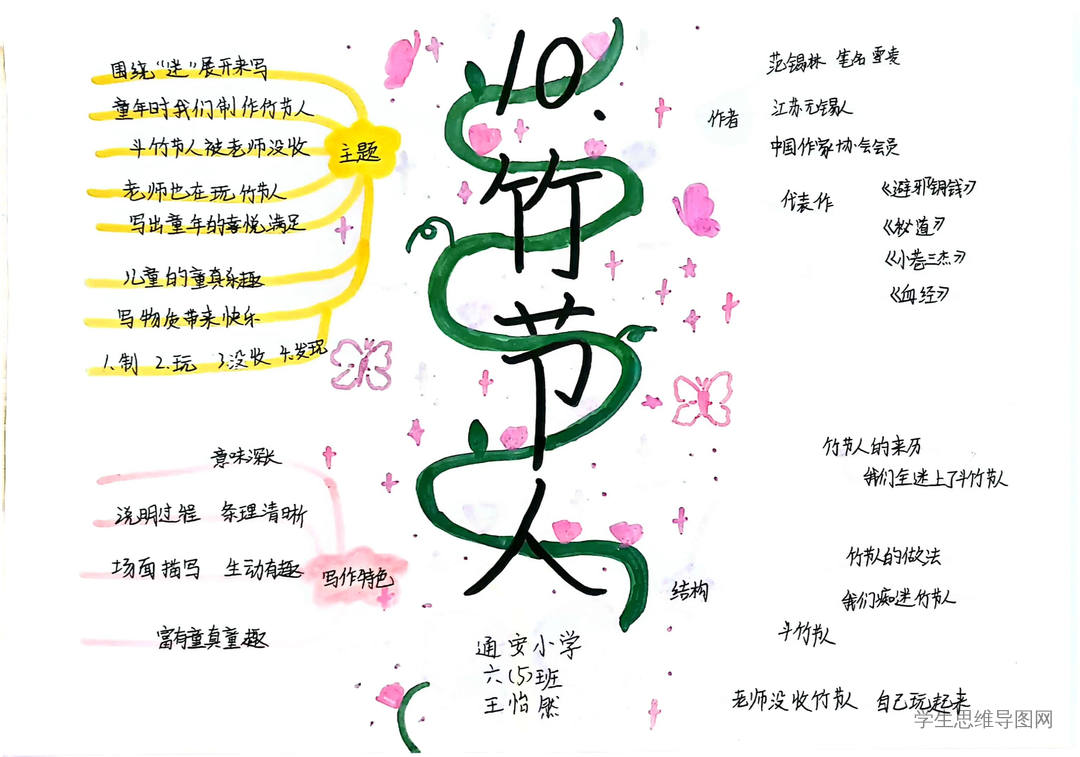 10.竹节人
围绕“迷”展开来写
童年时我们制作竹节人
斗竹节人被老师没收
老师也在玩竹节人
写出童年的喜悦满足
儿童的童真乐趣
写物质带来快乐
1.制 2.玩 3.没收 4.发现
主题
意味深长
说明过程 条理清晰
场面描写 生动有趣
富有童真童趣
写作特色
作者
范锡林 笔名
江苏无锡人
中国作家协会会员
代表作
《避邪铜钱》
《秘道》
《小巷三杰》
《血经》
结构
竹节人的来历
我们全迷上了斗竹节人
竹节人的做法
我们痴迷竹节人
斗竹节人
老师没收竹节人 自己玩起来
通安小学
六(5)班
王怡然
学生思维导图网